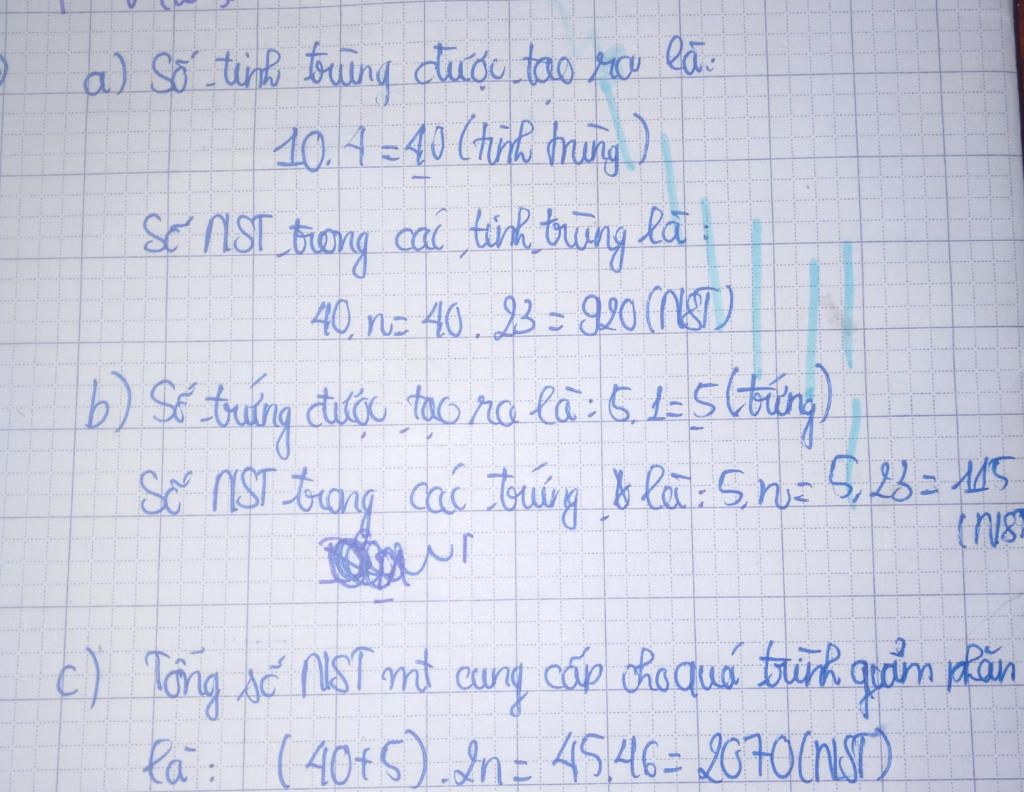 a) Số tinh trùng được tạo ra là:
10.4=40 (tinh trùng)
Số NST trong các tinh trùng là:
40.n= 40.23=920(NST)
b) Số trứng được tạo ra là: 5.1=5 (trứng)
Số NST trong các trứng là: 5.n= 5.23= 115
(NST
c) Tổng số NST mt cung cấp cho quá trình giảm phân
là: (40+5).2n= 45.46= 2070(NST)